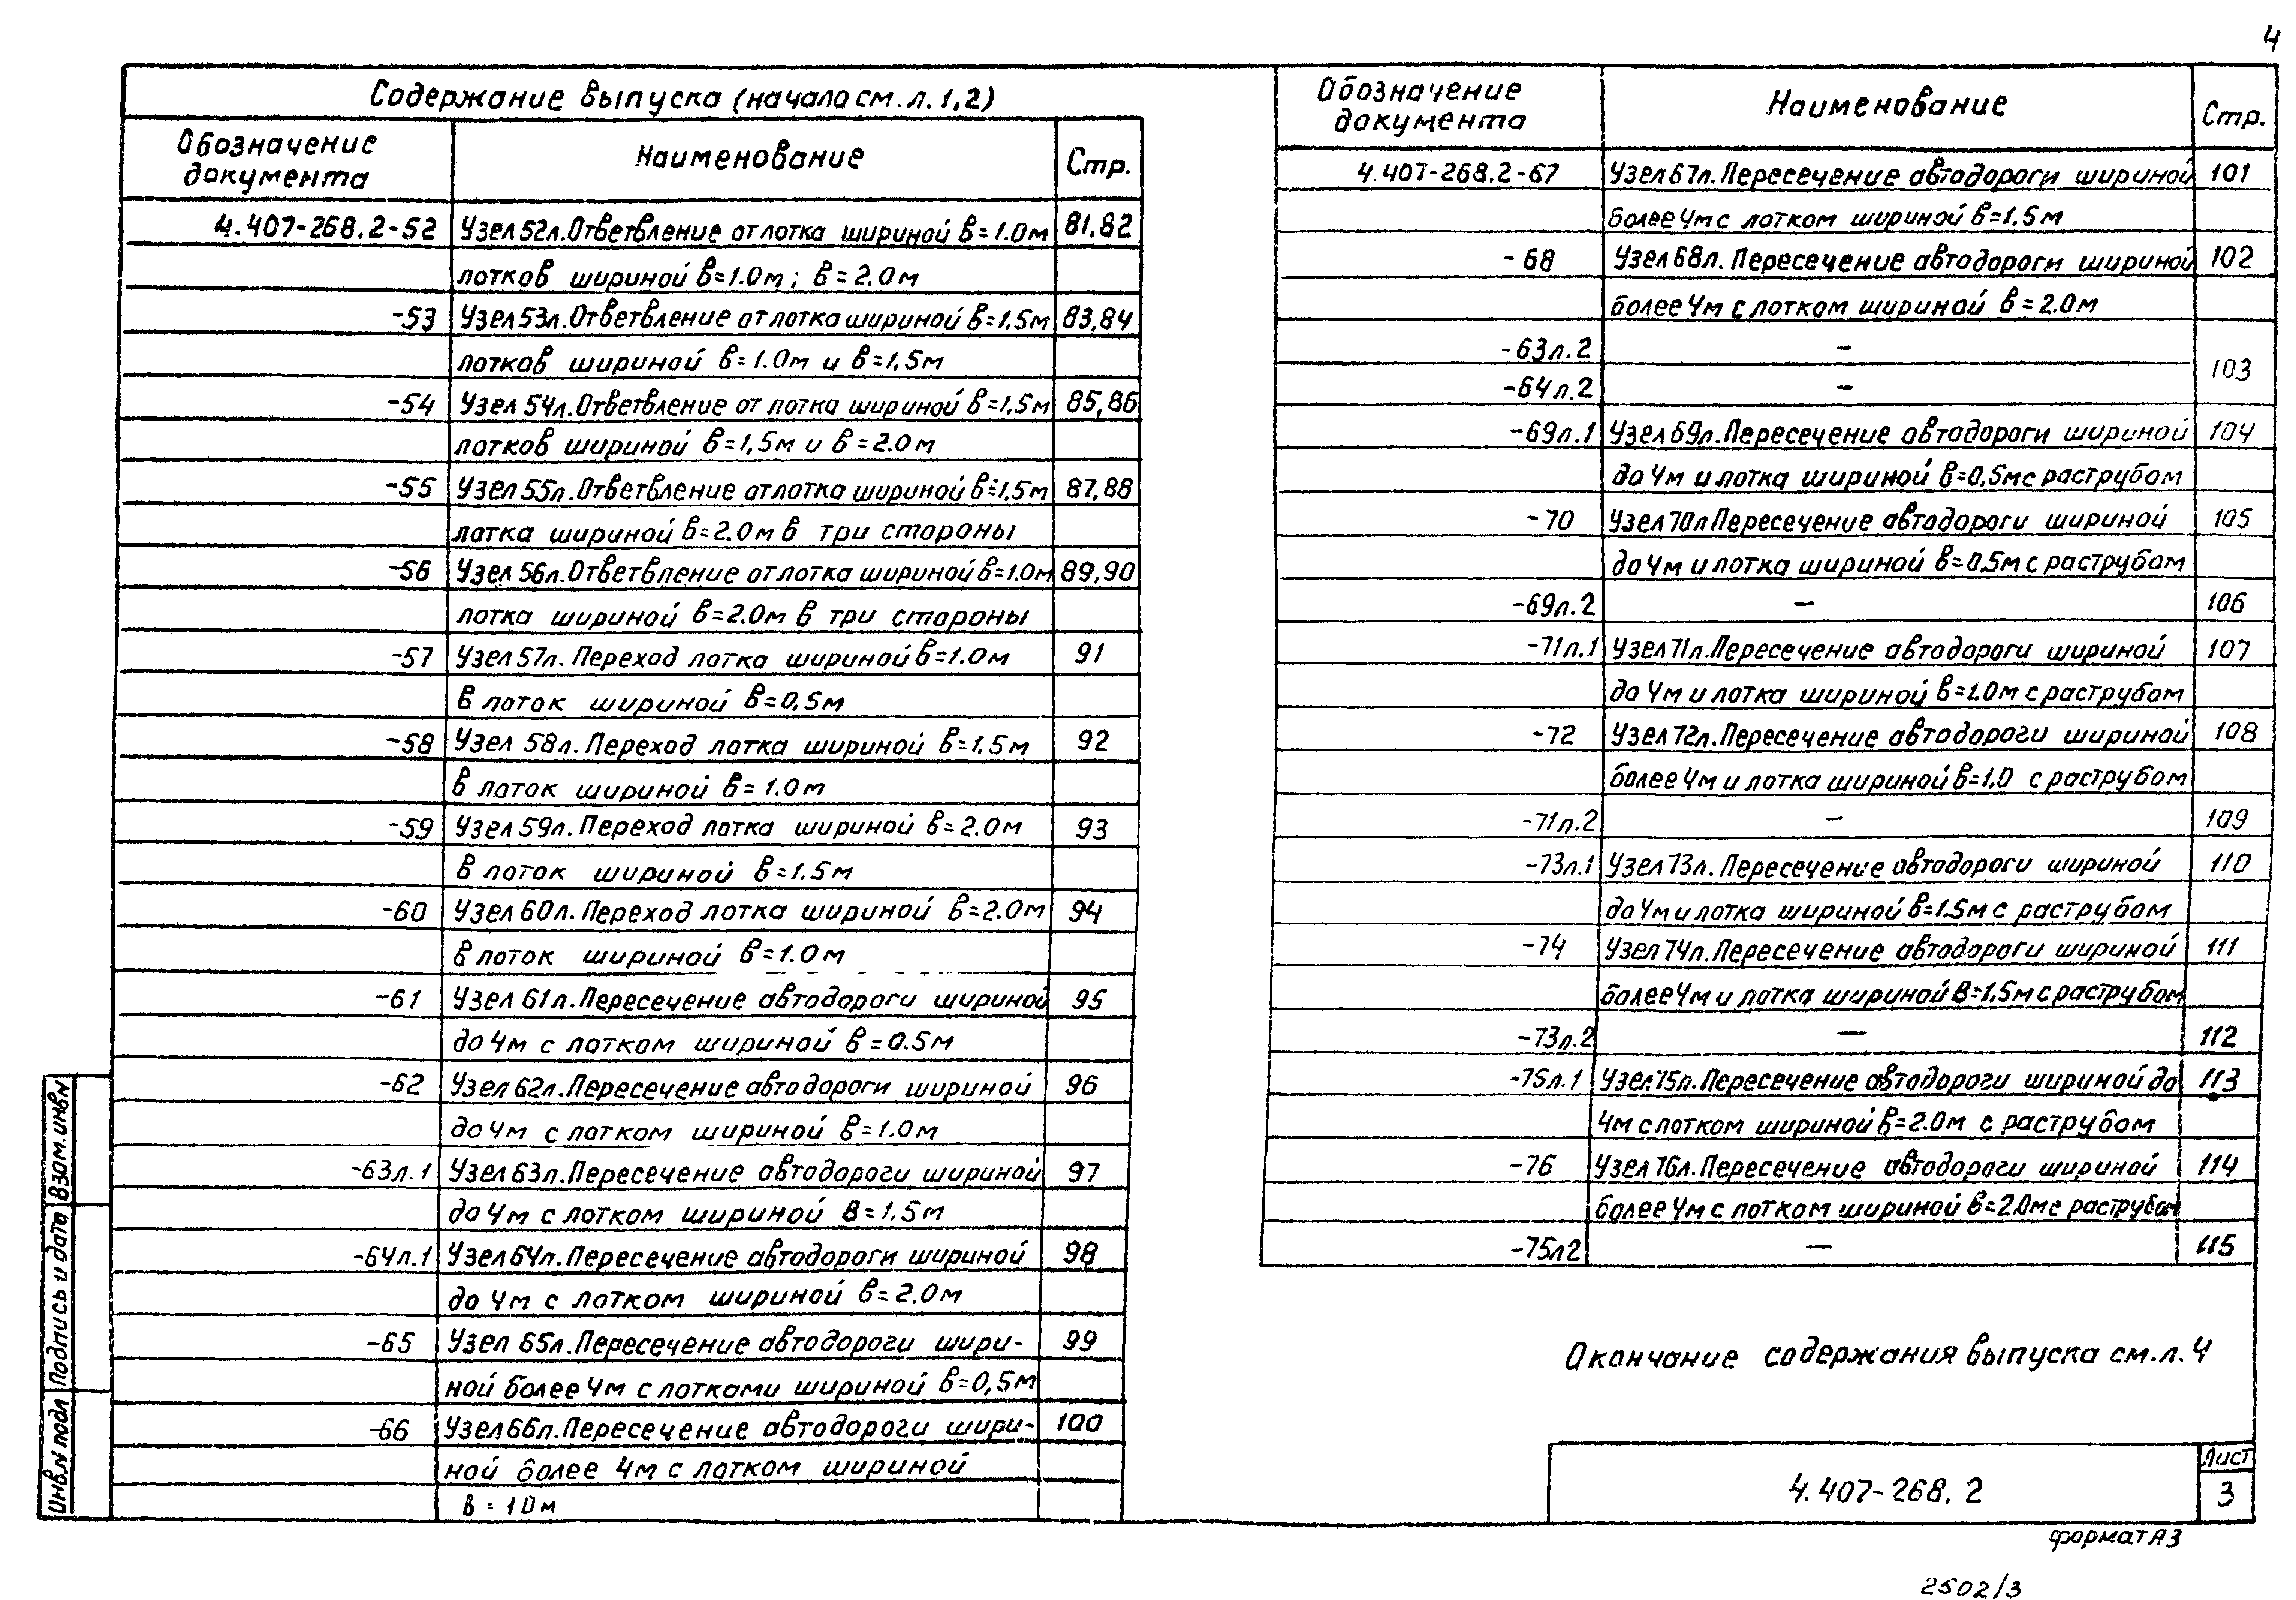 4
Содержание выпуска (начало см. л. 1,2)
Обозначение документа Наименование Стр.
4.407-268.2-52 Узел 52л. Ответвление от лотка шириной в=1.0м 81,82
лотков шириной в=1.0м; в=2.0м
-53 Узел 53л. Ответвление от лотка шириной в=1,5м 83,84
лотков шириной в=1.0м и в=1,5м
-54 Узел 54л. Ответвление от лотка шириной в=1,5м 85,86
лотков шириной в=1,5м и в=2.0м
-55 Узел 55л. Ответвление от лотка шириной в=1,5м 87,88
лотка шириной в=2.0м в три стороны
-56 Узел 56л. Ответвление от лотка шириной в=1.0м 89,90
лотка шириной в=2.0м в три стороны
-57 Узел 57л. Переход лотка шириной в=1.0м 91
в лоток шириной в=0,5м
-58 Узел 58л. Переход лотка шириной в=1,5м 92
в лоток шириной в=1.0м
-59 Узел 59л. Переход лотка шириной в=2.0м 93
в лоток шириной в=1.5м
-60 Узел 60л. Переход лотка шириной в=2.0м 94
в лоток шириной в=1.0м
-61 Узел 61л. Пересечение автодороги шириной 95
до 4м с лотком шириной в=0.5м
-62 Узел 62л. Пересечение автодороги шириной 96
до 4м с лотком шириной в=1.0м
-63л.1 Узел 63л. Пересечение автодороги шириной 97
до 4м с лотком шириной В=1.5м
-64л.1 Узел 64л. Пересечение автодороги шириной 98
до 4м с лотком шириной в=2.0м
-65 Узел 65л. Пересечение автодороги шири- 99
ной более 4м с лотками шириной в=0,5м
-66 Узел 66л. Пересечение автодороги шири- 100
ной более 4м с лотком шириной
в=10м
Обозначение документа Наименование Стр.
4.407-268.2-67 Узел 67л. Пересечение автодороги шириной 101
более 4м с лотком шириной в=1.5м
-68 Узел 68л. Пересечение автодороги шириной 102
более 4м с лотком шириной в=2.0м
-63л.2 –
103
-64л.2 –
-69л.1 Узел 69л. Пересечение автодороги шириной 104
до 4м и лотка шириной в=0,5м с раструбом
-70 Узел 70л Пересечение автодороги шириной 105
до 4м и лотка шириной в=0.5м с раструбом
-69л.2 – 106
-71л.1 Узел 71л. Пересечение автодороги шириной 107
до 4м и лотка шириной в=1.0м с раструбом
-72 Узел 72л. Пересечение автодороги шириной 108
более 4м и лотка шириной в=1,0 с раструбом
-71л.2 – 109
-73л.1 Узел 73л. Пересечение автодороги шириной 110
до 4м и лотка шириной в=1.5м с раструбом
-74 Узел 74л. Пересечение автодороги шириной 111
более 4м и лотка шириной В=1,5м с раструбом
-73л.2 – 112
-75л.1 Узел 75л. Пересечение автодороги шириной до 113
4м с лотком шириной в=2.0м с раструбом
-76 Узел 76л. Пересечение автодороги шириной 114
более 4м с лотком шириной в=2.0м с раструбом
-75л2 – 115
Окончание содержания выпуска см. л. 4
4.407-268.2
Лист
3
формат А3
2502/3
Инв.N подл Подпись и дата Взам. инв.N